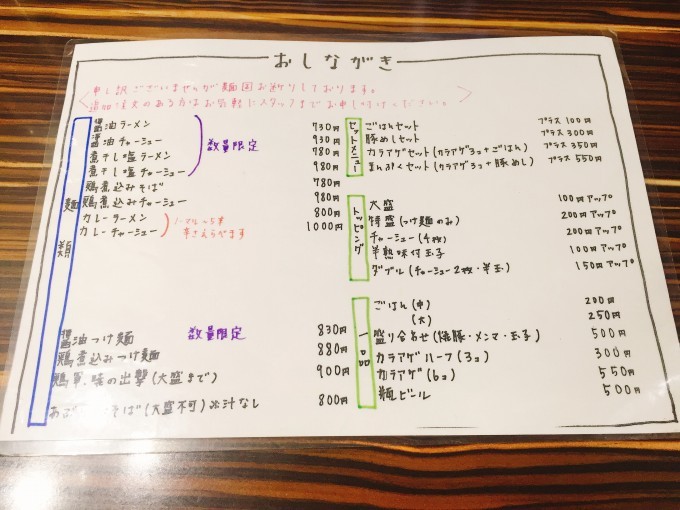 おしながき
申し訳ございませんが麺固お断りしております。
追加注文のある方はお気軽にスタッフまでお申し付けください。
麺類
醤油ラーメン 730円
醤油チャーシュー 930円
煮干し塩ラーメン 780円
煮干し塩チャーシュー 980円
数量限定
鶏煮込みそば 780円
鶏煮込みチャーシュー 980円
カレーラーメン 800円
カレーチャーシュー 1000円
ノーマル〜5辛
辛さえらべます
醤油つけ麺 数量限定 830円
鶏煮込みつけ麺 880円
鶏軍、味の出撃(大盛まで) 900円
そば(大盛不可)※汁なし 800円
セットメニュー
ごはんセット プラス100円
豚めしセット プラス300円
カラアゲセット(カラアゲ3コ+ごはん) プラス350円
まんぷくセット(カラアゲ3コ+豚めし) プラス550円
トッピング
大盛 100円アップ
特盛(つけ麺のみ) 200円アップ
チャーシュー(4枚) 200円アップ
半熟味付玉子 100円アップ
ダブル(チャーシュー2枚・半玉) 150円アップ
一品
ごはん(中) 200円
(大) 250円
盛り合わせ(豚・メンマ・玉子) 500円
カラアゲハーフ(3コ) 300円
カラアゲ(6コ) 550円
瓶ビール 500円